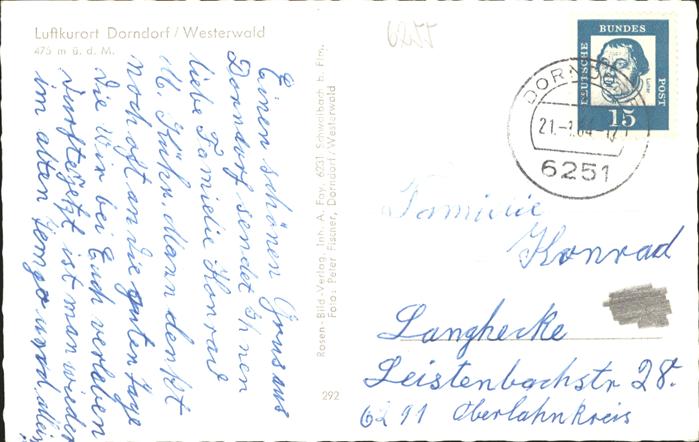 Luftkurort Dorndorf / Westerwald
475 m ü. d. M.
6255
Einen schönen Gruss aus
Dorndorf sendet Ihnen
liebe Familie Konrad
M. Kühn. Mann denkt
noch oft an die guten Tage
die Wir bei Euch verleben
durfte jetzt ist man wieder
im alten
Rosen-Bild-Verlag. Inh. A. Fay, 6231 Schwalbach b. Ffm.
Foto: Peter Fischer, Dorndorf / Westerwald
292
DEUTSCHE BUNDES POST
Luther
15
DORNDORF
21.-1.64-17
6251
Familie
Konrad
Langhecke
Leistenbachstr 28.
6291 Oberlahnkreis